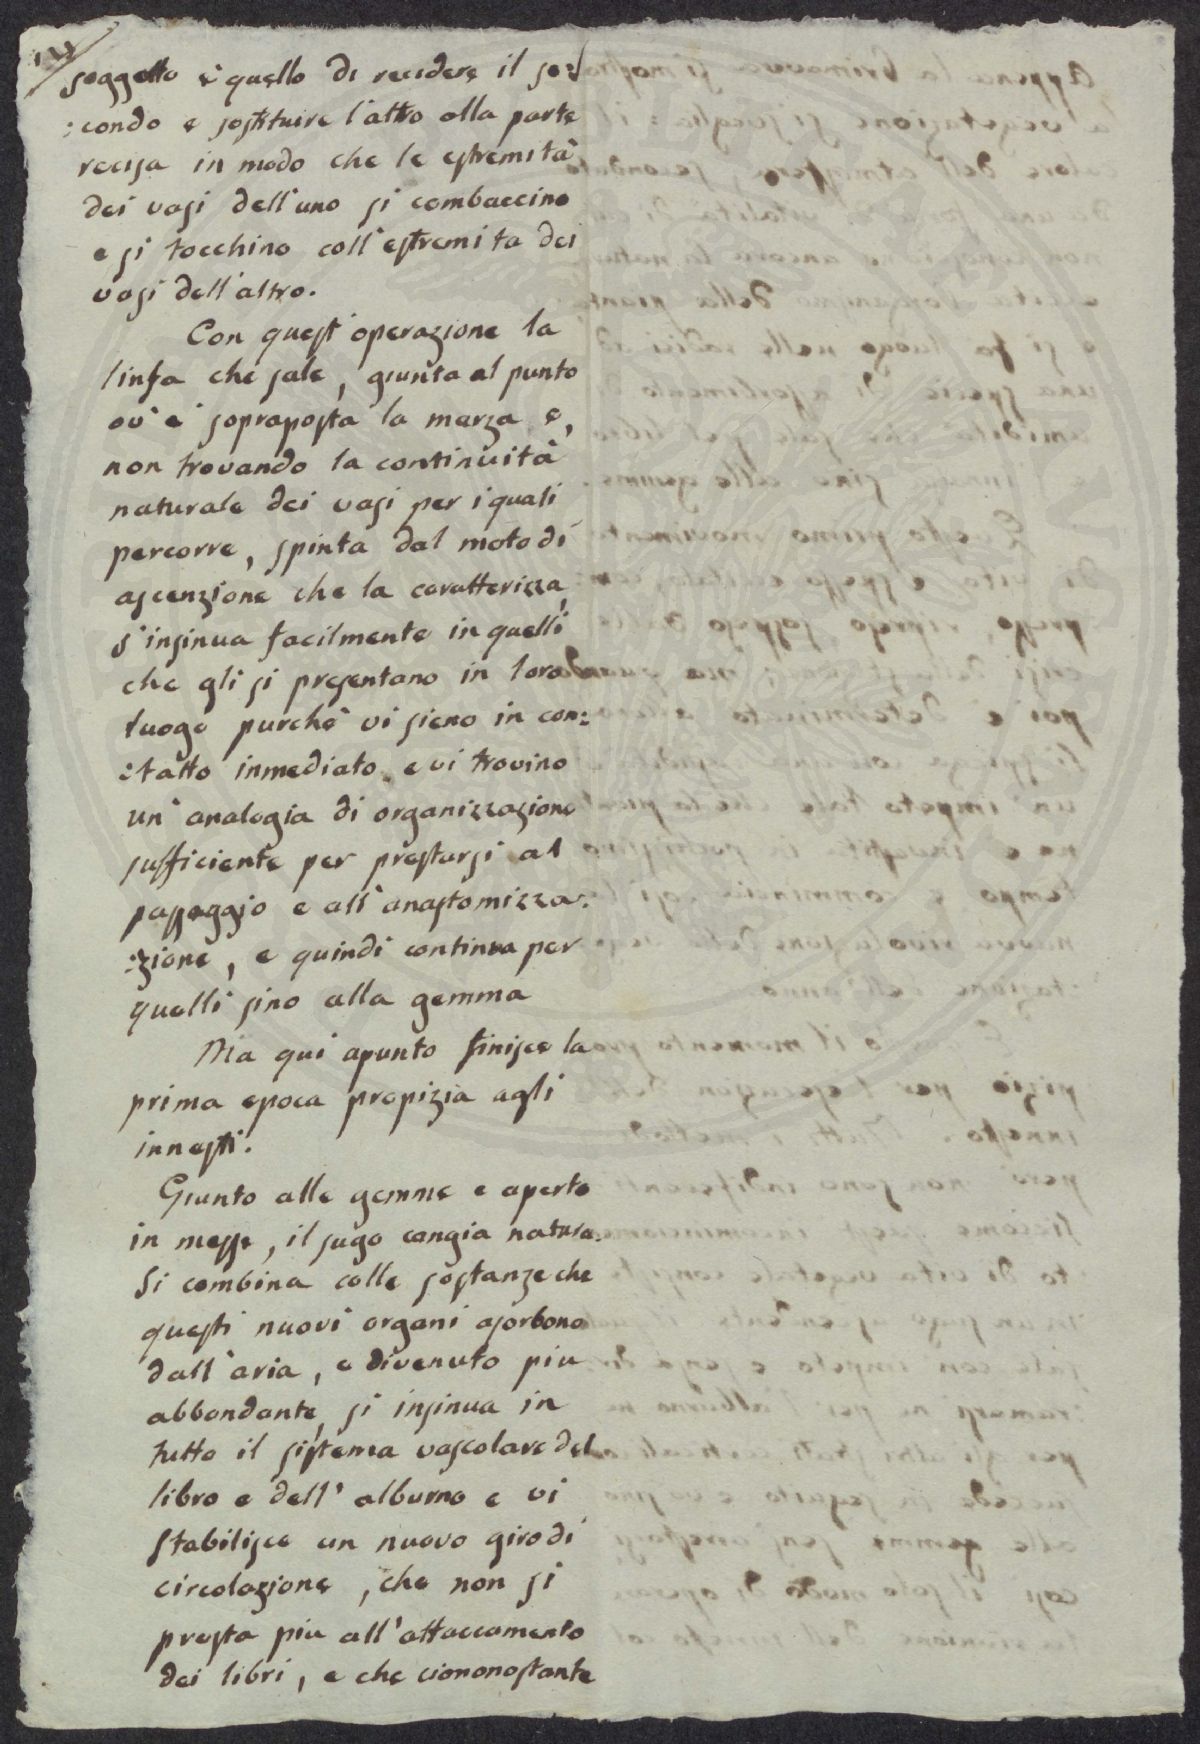 14
soggetto è quello di recidere il se:
:condo e sostituire l'altro alla parte
recisa in modo che le estremità
dei vasi dell'uno si combaccino
e si tocchino coll'estremita dei
vasi dell'altro.
Con quest'operazione la
linfa che sale, giunta al punto
ov'è sopraposta la marza e,
non trovando la continuità
naturale dei vasi per i quali
percorre, spinta dal moto di
ascenzione che la caratterizza,
s'insinua facilmente in quelli
che gli si presentano in loro
luogo purchè vi sieno in con:
:tatto inmediato e vi trovino
un'analogia di organizzazione
sufficiente per prestarsi al
passaggio e all'anastomizza:
:zione, e quindi continua per
quelli sino alla gemma
Ma qui apunto finisce la
prima epoca propizia agli
innesti.
Giunto alle gemme e aperte
in messe, il sugo cangia natura.
Si combina colle sostanze che
questi nuovi organi asorbono
dall'aria, e divenuto piu
abbondante, si insinua in
tutto il sistema vascolare del
libro e dell'alburno e vi
stabilisce un nuovo giro di
circolazione, che non si
presta piu all'attaccamento
dei libri, e che ciononostante